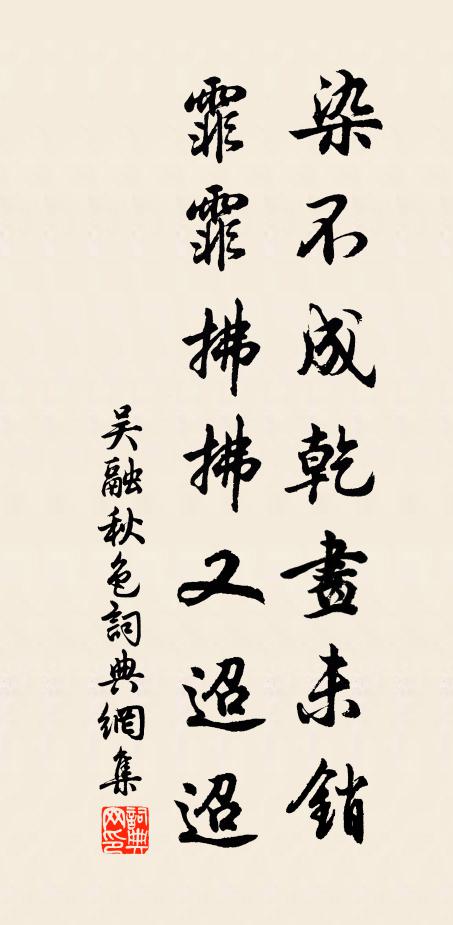 染不成乾畫未銷
霏霏拂拂又迢迢
吳融秋色詞典網集
詞典网印